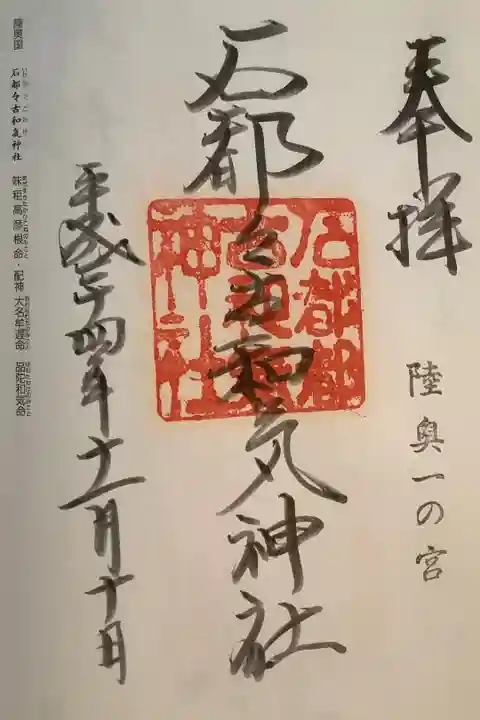 奉拝
陸奥一の宮
石都々古和気神社
石都都
古和氣
神社
平成二十四年十一月十日
陸奥国 石都々古和気神社 味耜高彦根命・配神 大名牟遅命 品陀和気命